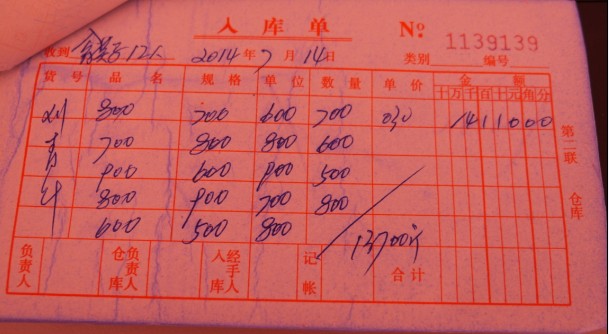 入库单 No 1139139
收到 12人 2014年7月14日 类别 编号
货号 品名 规格 单位 数量 单价 金额
十万千百十元角分
800 700 600 700 030 1411000
700 800 800 600
900 600 900 500
800 900 700 800
600 500 800
13700斤
第二联 仓库
负责人 仓库负责人 入库经手人 记帐 合计